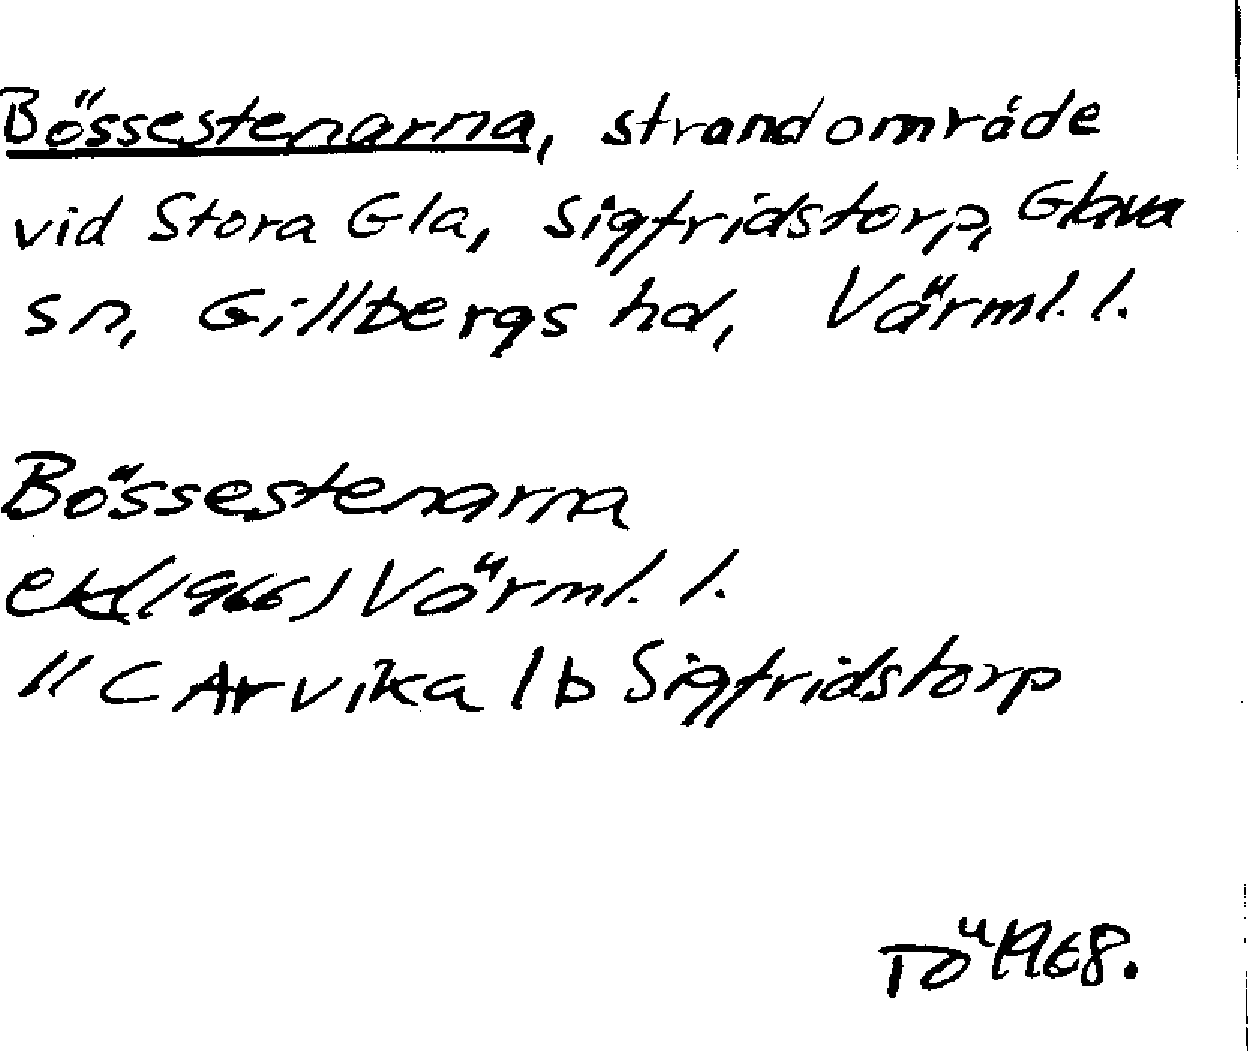 Bössestenarna, strandområde
vid Stora Gla, Sigfridstorp, Glava
sn, Gillbergs hd, Värml. l.
Bössestenarna
ek (1966) Värml. l.
11 C Arvika 1 b Sigfridstorp
TÖ 1968.